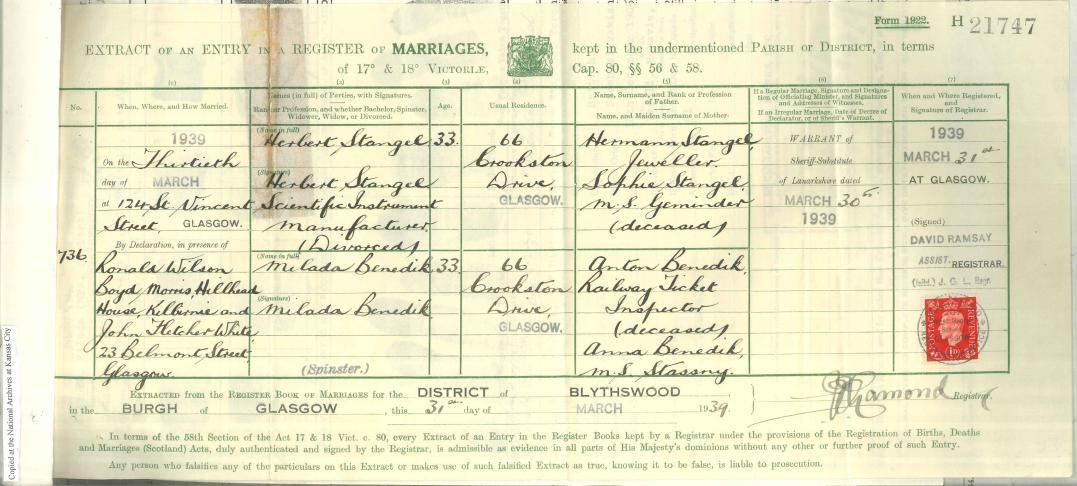 Form 1922. H 21747
EXTRACT OF AN ENTRY IN A REGISTER OF MARRIAGES, kept in the undermentioned PARISH OR DISTRICT, in terms
of 17° & 18° VICTORIÆ, Cap. 80, §§ 56 & 58.
(1) (2) (3) (4) (5) (6) (7)
No.
When, Where, and How Married.
Names (in full) of Parties, with Signatures.
Rank or Profession, and whether Bachelor, Spinster,
Widower, Widow, or Divorced.
Age.
Usual Residence.
Name, Surname, and Rank or Profession
of Father.
Name, and Maiden Surname of Mother.
If a Regular Marriage, Signature and Designa-
tion of Officiating Minister, and Signatures
and Addresses of Witnesses.
If an Irregular Marriage, Date of Decree of
Declarator, or of Sheriff's Warrant.
When and Where Registered,
and
Signature of Registrar.
736.
1939
On the Thirtieth
day of MARCH
at 124 St. Vincent
Street, GLASGOW.
By Declaration, in presence of
Ronald Wilson
Boyd, Morris, Hillhead
House, Kilbirnie and
John Fletcher White
23 Belmont Street
Glasgow.
(Name in full)
Herbert Stangel
(Signature)
Herbert Stangel
Scientific Instrument
Manufacturer
(Divorced)
(Name in full)
Milada Benedik
(Signature)
Milada Benedik
(Spinster.)
33.
33
66
Crookston
Drive,
GLASGOW.
66
Crookston
Drive,
GLASGOW.
Hermann Stangel,
Jeweller.
Sophie Stangel,
M.S. Geminder
(deceased)
Anton Benedik,
Railway Ticket
Inspector
(deceased)
Anna Benedik,
M.S. Stassny.
WARRANT of
Sheriff-Substitute
of Lanarkshire dated
MARCH 30
1939
1939
MARCH 31st
AT GLASGOW.
(Signed)
DAVID RAMSAY
ASSIST. REGISTRAR.
(Intld.) J. G. L. Regr.
POSTAGE REVENUE
EXTRACTED FROM THE REGISTER BOOK OF MARRIAGES for the DISTRICT of BLYTHSWOOD
in the BURGH of GLASGOW, this 31st day of MARCH 1939.
Registrar.
In terms of the 58th Section of the Act 17 & 18 Vict. c. 80, every Extract of an Entry in the Register Books kept by a Registrar under the provisions of the Registration of Births, Deaths
and Marriages (Scotland) Acts, duly authenticated and signed by the Registrar, is admissible as evidence in all parts of His Majesty's dominions without any other or further proof of such Entry.
Any person who falsifies any of the particulars on this Extract or makes use of such falsified Extract as true, knowing it to be false, is liable to prosecution.
Copied at the National Archives at Kansas City